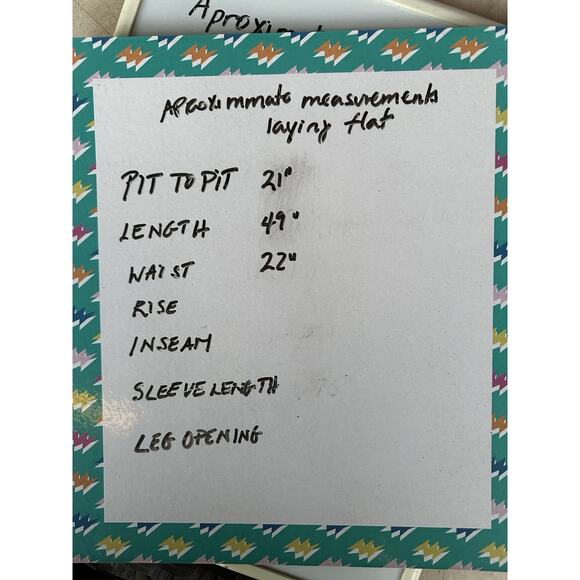 Aproxim
Aproximmate measurements
laying flat
PIT TO PIT 21"
LENGTH 49"
WAIST 22"
RISE
INSEAM
SLEEVE LENGTH
LEG OPENING